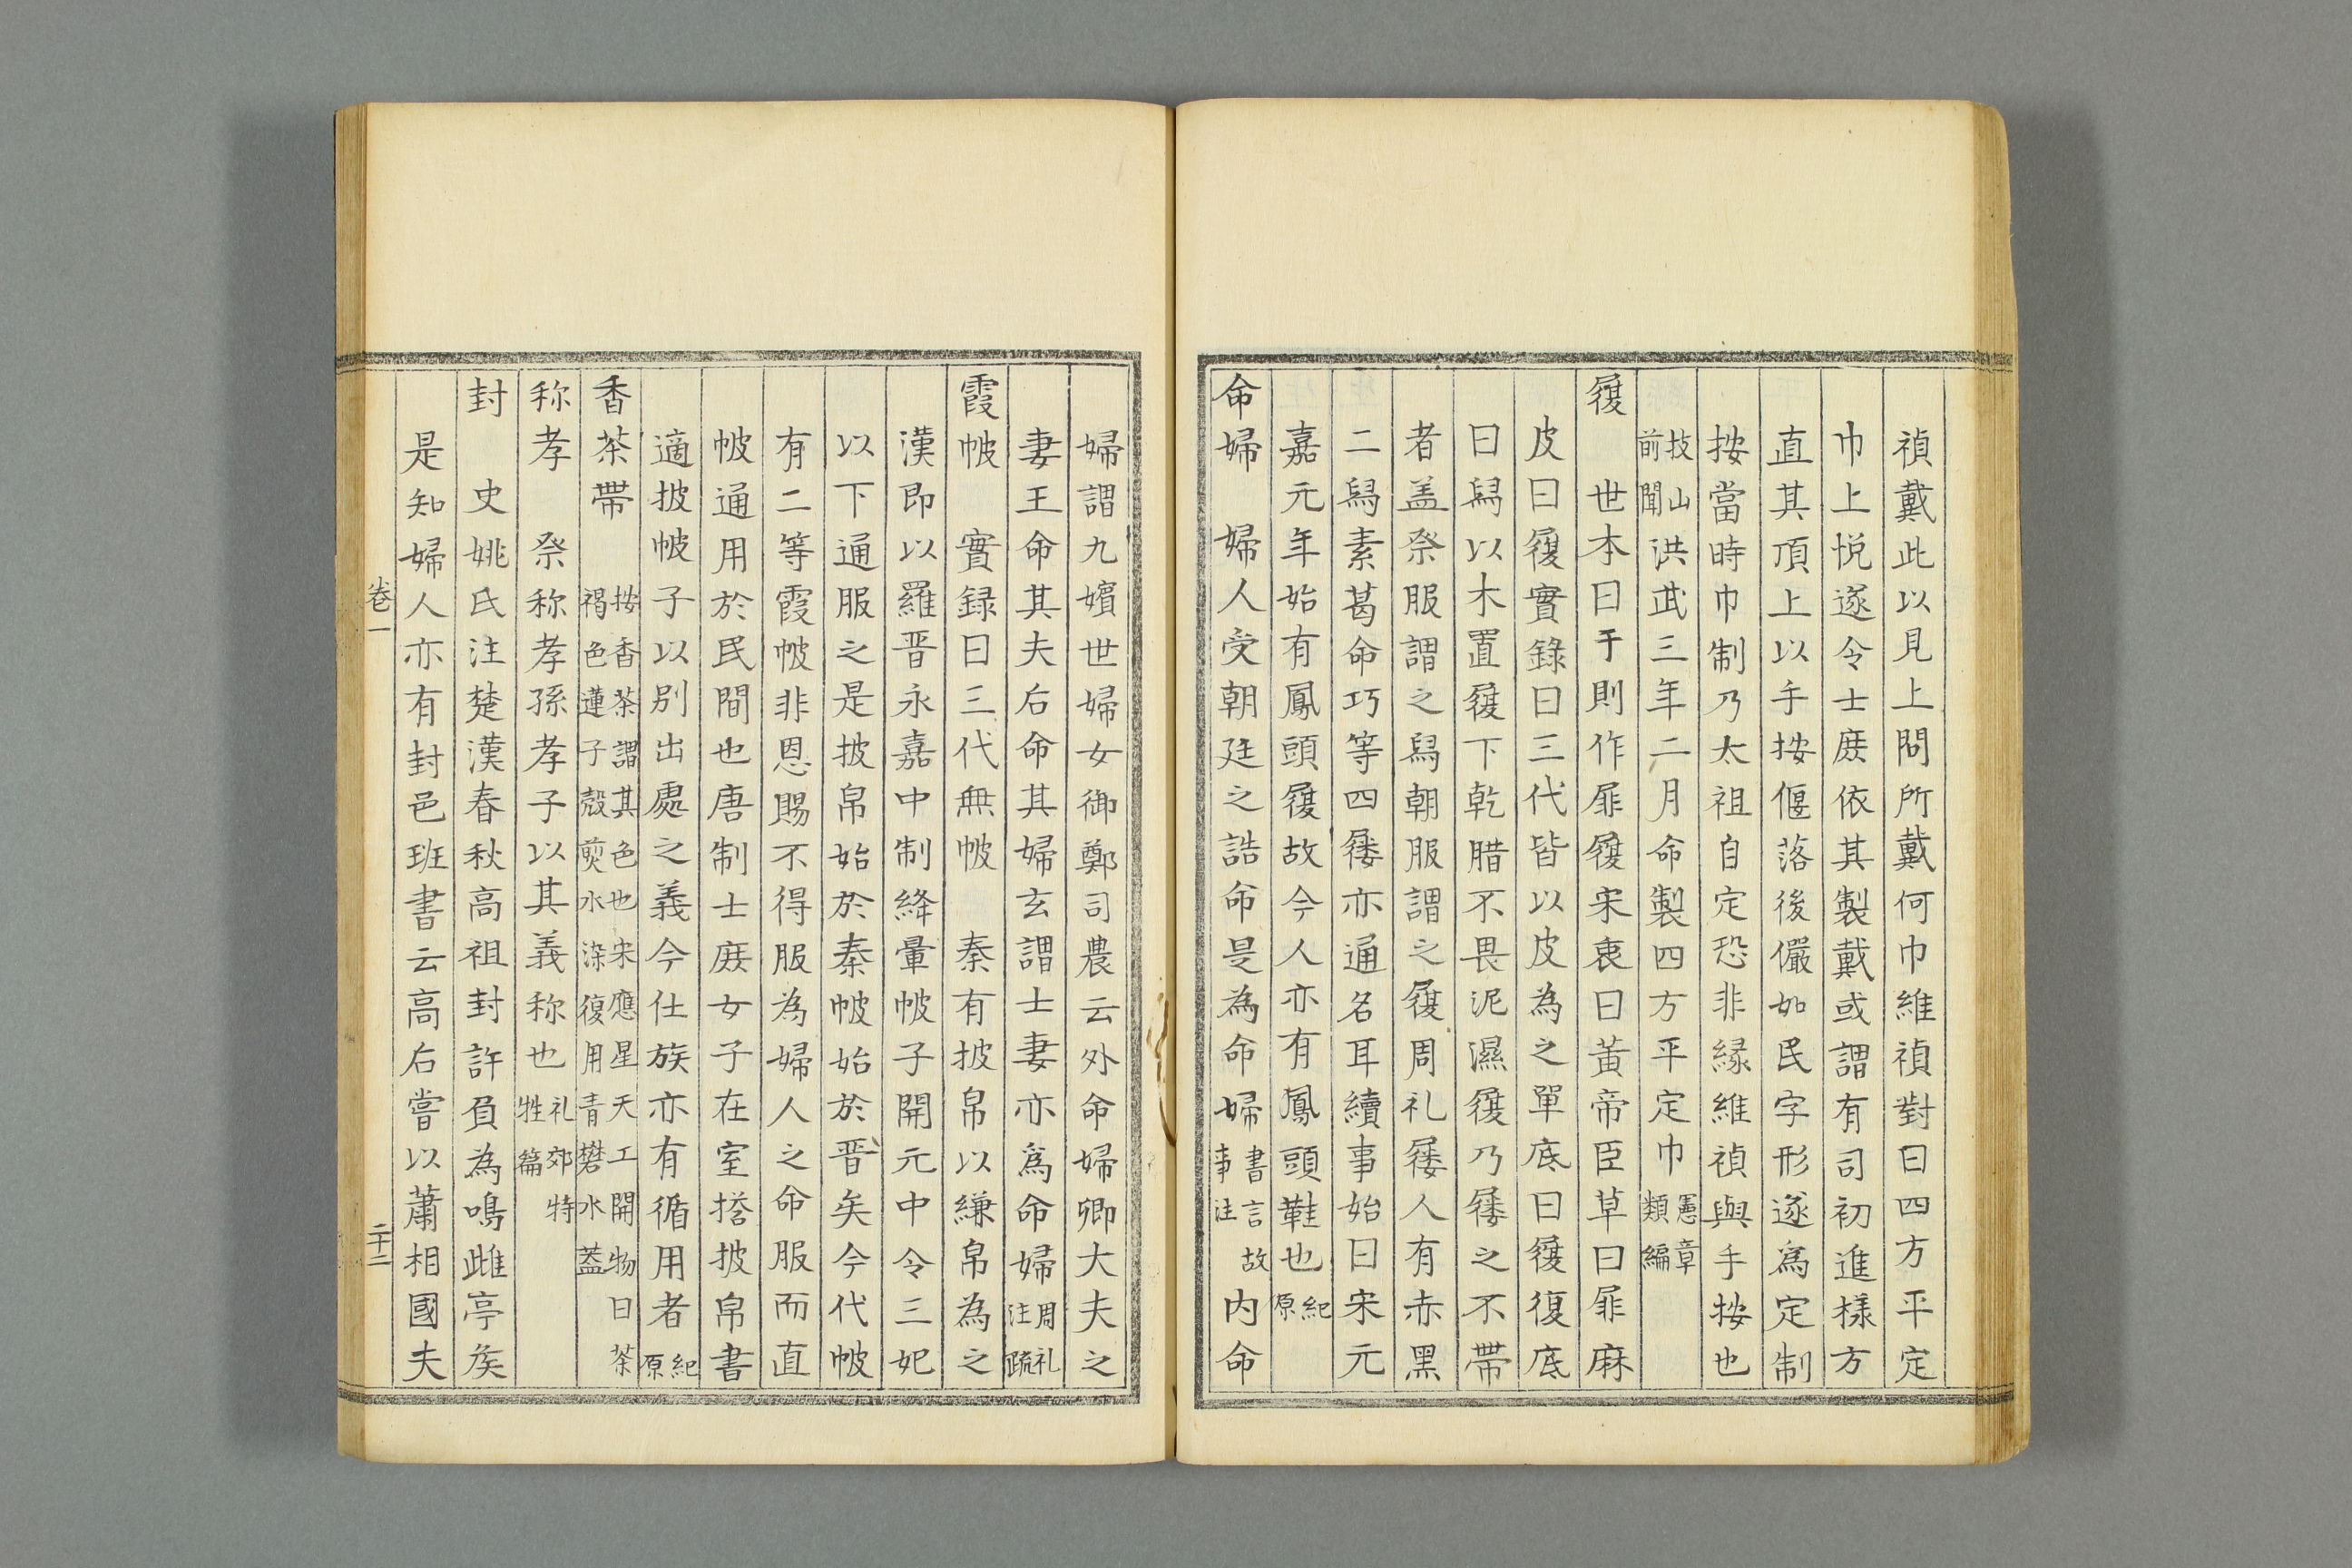 禎戴此以見上問所戴何巾維禎對曰四方平定
巾上悦遂令士庻依其製戴或謂有司初進様方
直其頂上以手按偃落後儼如民字形遂爲定制
按當時巾制乃太祖自定恐非縁維禎與手按也
技山前聞洪武三年二月命製四方平定巾憲章類編
履 世本曰于則作扉履宋衷曰黃帝臣草曰扉麻
皮曰履實錄曰三代皆以皮為之單底曰履復底
曰舄以木置履下乾腊不畏泥濕履乃屨之不帶
者盖祭服謂之舄朝服謂之履周礼屨人有赤黑
二舄素葛命巧等四屨亦通名耳續事始曰宋元
嘉元年始有鳳頭履故今人亦有鳳頭鞋也紀原
命婦 婦人受朝廷之誥命是為命婦書言故事注内命
婦謂九嬪世婦女御鄭司農云外命婦卿大夫之
妻王命其夫后命其婦玄謂士妻亦爲命婦周礼注疏
霞帔 實録曰三代無帔 秦有披帛以縑帛為之
漢即以羅晋永嘉中制絳暈帔子開元中令三妃
以下通服之是披帛始於秦帔始於晋矣今代帔
有二等霞帔非恩賜不得服為婦人之命服而直
帔通用於民間也唐制士庻女子在室搭披帛書
適披帔子以別出處之義今仕族亦有循用者紀原
香茶帶 按香茶謂其色也宋應星天工開物曰茶褐色蓮子殼煎水染復用青礬水蓋
称孝 祭称孝孫孝子以其義称也礼郊特牲篇
封 史姚氏注楚漢春秋高祖封許負為鳴雌亭矦
是知婦人亦有封邑班書云高后嘗以蕭相國夫
卷一
二十二